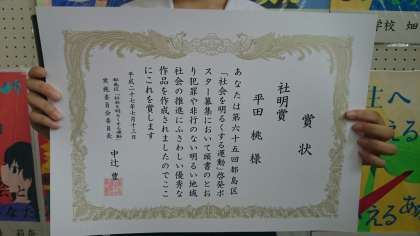 賞状
社明賞
平田 桃 様
あなたは第六十五回都島区
「社会を明るくする運動」啓発ポ
スター募集において頭書のとお
り犯罪や非行のない明るい地域
社会の推進にふさわしい優秀な
作品を作成されましたのでここ
にこれを賞します
平成二十七年七月十三日
都島区「社会を明るくする運動」
実施委員会委員長
中辻 豊
学校 畑
へる
える